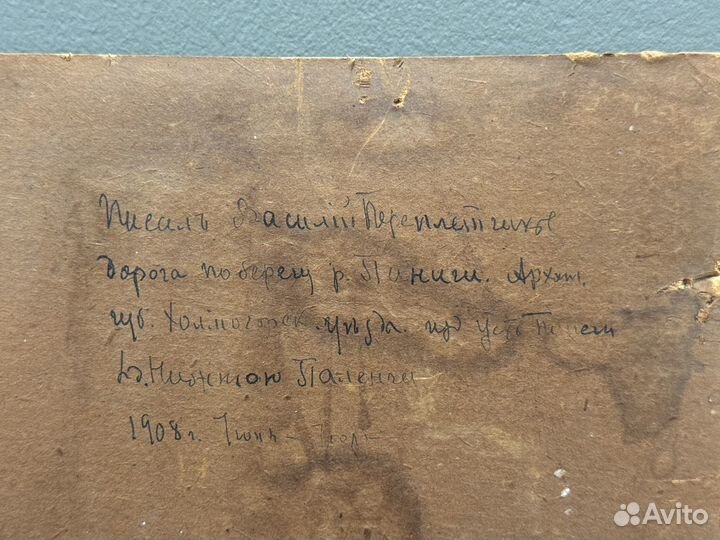 Писалъ Василій Переплетчиковъ
Дорога по берегу р. Пинеги. Арханг.
губ. Холмогорск. уѣзда. Усть Пинеги
Нижнюю Паленьгу
1908 г. Іюнь – Іюль
Avito